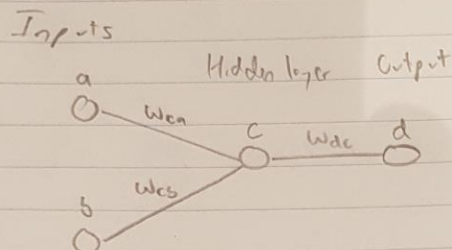 Inputs
Hidden layer Output
a
Wca
c
Wdc
d
Wcb
b